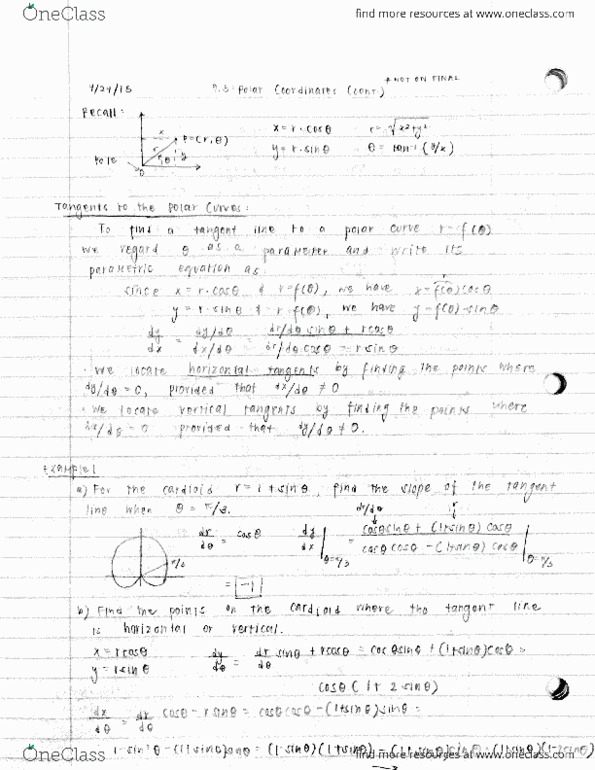 OneClass
find more resources at www.oneclass.com
* NOT ON FINAL
4/24/15 9.3 Polar Coordinates (cont.)
Recall:
x P=(r,θ) x=r·cosθ r=√x²+y²
r y y=r·sinθ θ=tan⁻¹(y/x)
Pole θ
0
Tangents to the Polar Curves:
To find a tangent line to a polar curve r=f(θ)
we regard θ as a parameter and write its
parametric equation as:
since x=r·cosθ & r=f(θ), we have x=f(θ)cosθ
y=r·sinθ & r=f(θ), we have y=f(θ)·sinθ
dy/dx = dy/dθ / dx/dθ = dr/dθ sinθ + rcosθ / dr/dθ cosθ - rsinθ
· We locate horizontal tangents by finding the points where
dy/dθ = 0, provided that dx/dθ ≠ 0
· We locate vertical tangents by finding the points where
dx/dθ = 0 provided that dy/dθ ≠ 0.
Example 1
a) For the cardioid r=1+sinθ, find the slope of the tangent
line when θ = π/3.
dr/dθ r
dr/dθ = cosθ dy/dx |θ=π/3 = cosθsinθ + (1+sinθ)cosθ / cosθcosθ - (1+sinθ)cosθ |θ=π/3
π/3
= -1
b) Find the points on the cardioid where the tangent line
is horizontal or vertical.
x=rcosθ dy/dθ = dr/dθ sinθ + rcosθ = cosθsinθ + (1+sinθ)cosθ =
y=rsinθ
cosθ(1+2sinθ)
dx/dθ = dr/dθ cosθ - rsinθ = cosθcosθ - (1+sinθ)sinθ =
1-sin²θ - (1+sinθ)sinθ = (1-sinθ)(1+sinθ) - (1+sinθ)sinθ = (1+sinθ)(1-2sinθ)
OneClass
find more resources at www.oneclass.com